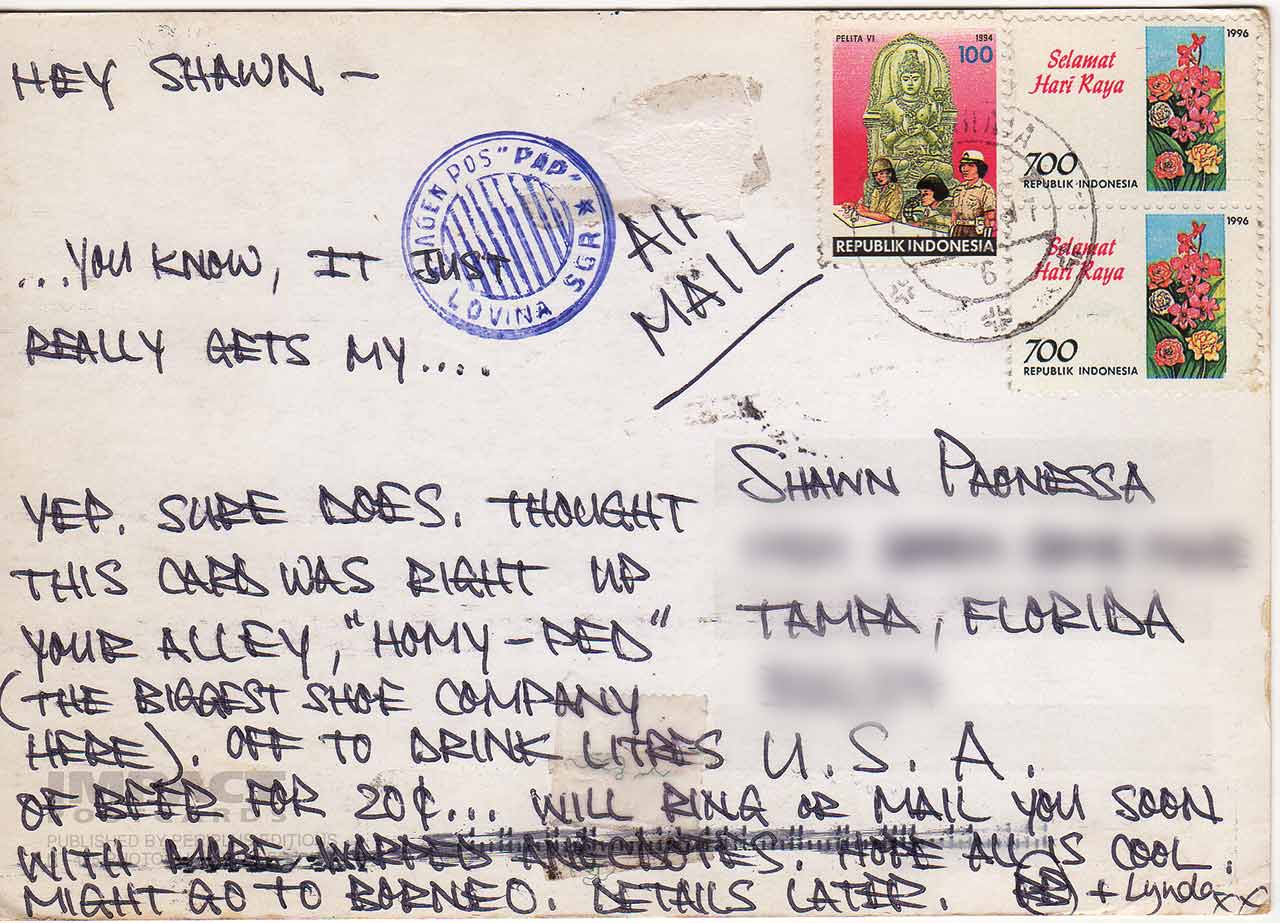 HEY SHAWN —
...YOU KNOW, IT JUST
REALLY GETS MY....
AGEN POS "PAP"
LOVINA SGR
AIR
MAIL
PELITA VI 1994
100
REPUBLIK INDONESIA
1996
Selamat
Hari Raya
700
REPUBLIK INDONESIA
1996
Selamat
Hari Raya
700
REPUBLIK INDONESIA
YEP. SURE DOES. THOUGHT
THIS CARD WAS RIGHT UP
YOUR ALLEY, "HOMY-PED"
(THE BIGGEST SHOE COMPANY
HERE). OFF TO DRINK LITRES
OF BEER FOR 20¢... WILL RING OR MAIL YOU SOON
WITH MORE WARPED ANECDOTES. HOPE ALL IS COOL.
MIGHT GO TO BORNEO. DETAILS LATER. + Lynda xx
SHAWN PAONESSA
TAMPA, FLORIDA
U.S.A.
IMPACT
POSTCARDS
PUBLISHED BY PERIPLUS EDITIONS